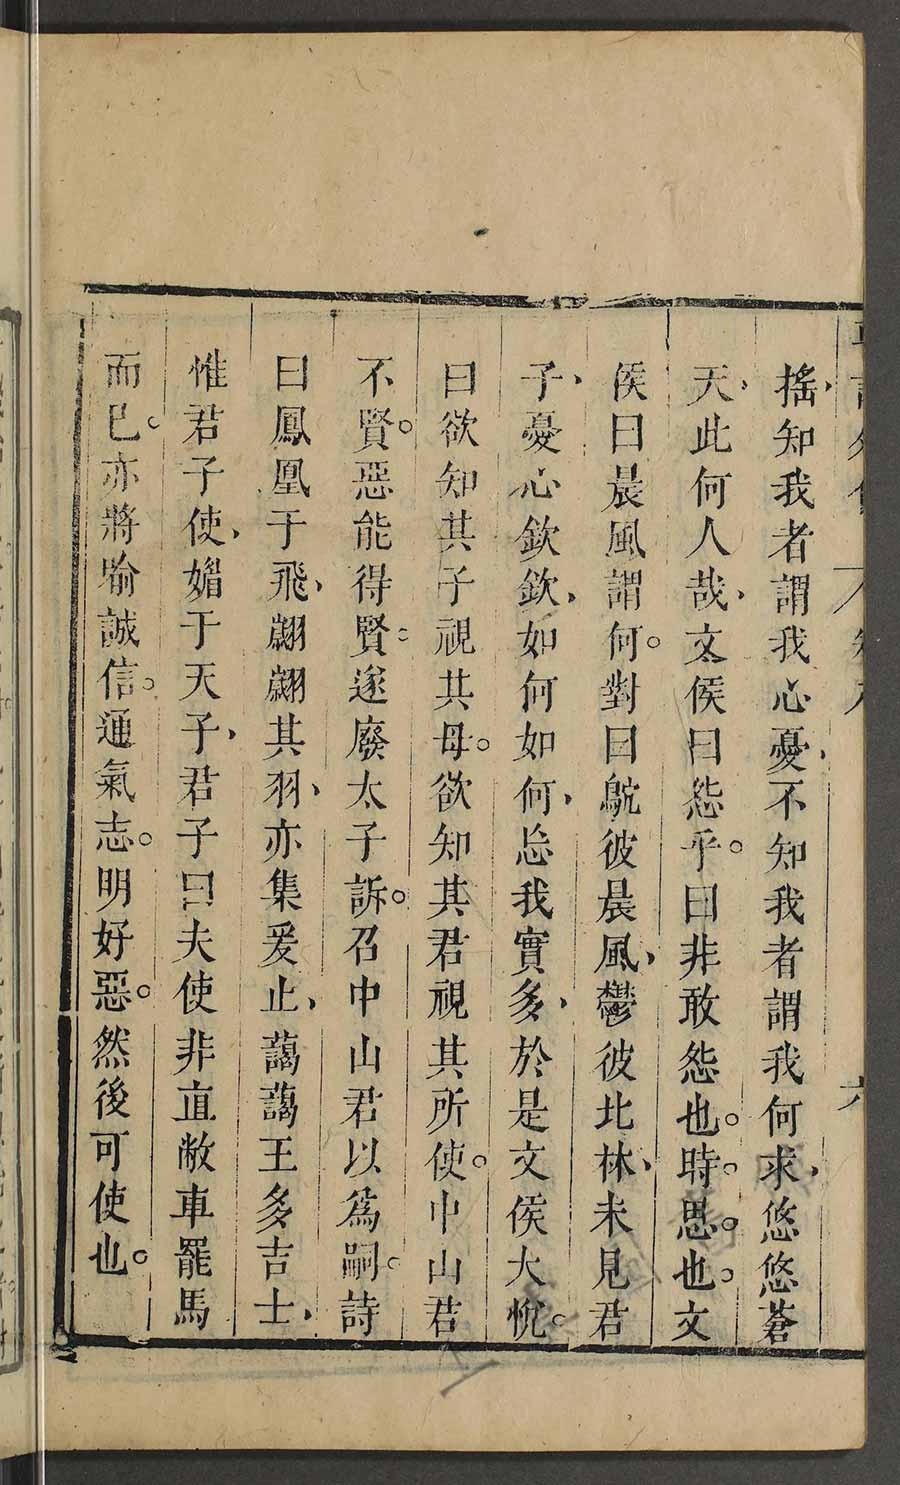 搖、知我者謂我心憂、不知我者謂我何求、悠悠蒼
天、此何人哉、文侯曰怨乎。曰非敢怨也。時思也。文
侯曰晨風謂何。對曰鴥彼晨風、鬱彼北林、未見君
子、憂心欽欽、如何如何、忘我實多、於是文侯大悅。
曰欲知其子視其母。欲知其君視其所使。中山君
不賢。惡能得賢。遂廢太子訴。召中山君以爲嗣。詩
曰鳳凰于飛、翽翽其羽、亦集爰止、藹藹王多吉士、
惟君子使、媚于天子、君子曰夫使非直敝車罷馬
而已。亦將喻誠信。通氣志。明好惡。然後可使也。